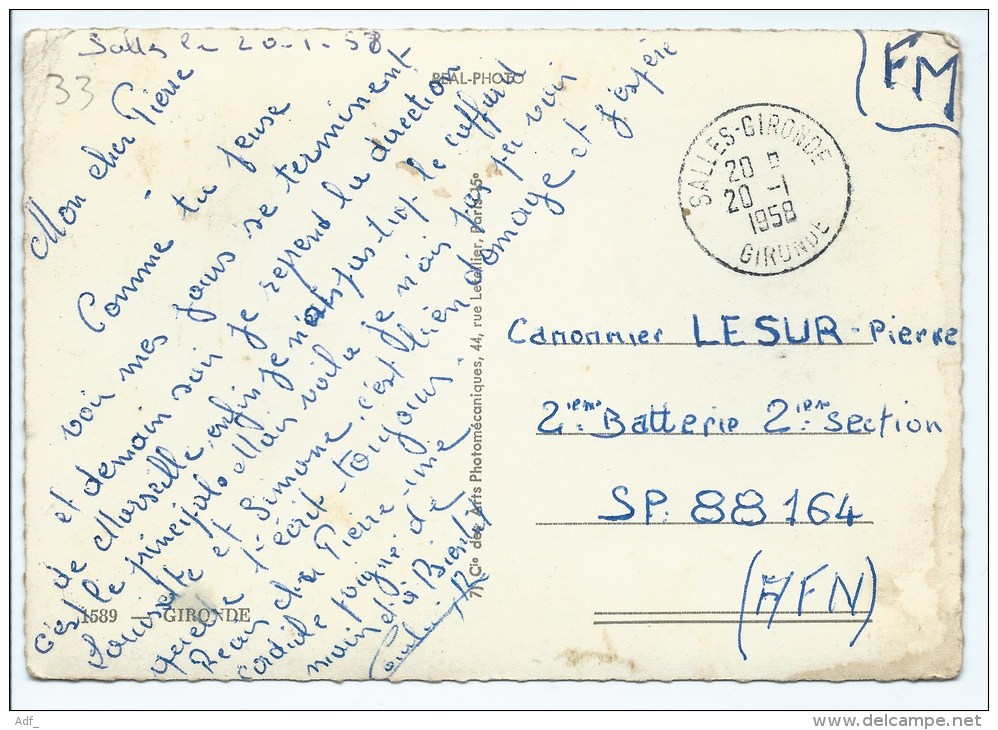 Salles le 20-1-58
33
REAL-PHOTO
FM
Mon cher Pierre
Comme tu peuse
voir mes jours se terminent
et demain soir je reprend la direction
de Marseille, enfin je n'ais pas trop le caffard
c'est le principale Mais voila je n'ais pas pu voir
Louisette et Simone. c'est bien domage et j'espère
quelle t'écrit toujours.
Pierre une
cordiale poigne de
main et à Bientot
SALLES-GIRONDE
20
20 -1
1958
GIRONDE
Canonnier LESUR-Pierre
2ième Batterie 2ième Section
SP. 88 164
(AFN)
1589 — GIRONDE
Cie des Arts Photomécaniques, 44, rue Letellier, Paris-15e
Adf_
delcampe.net